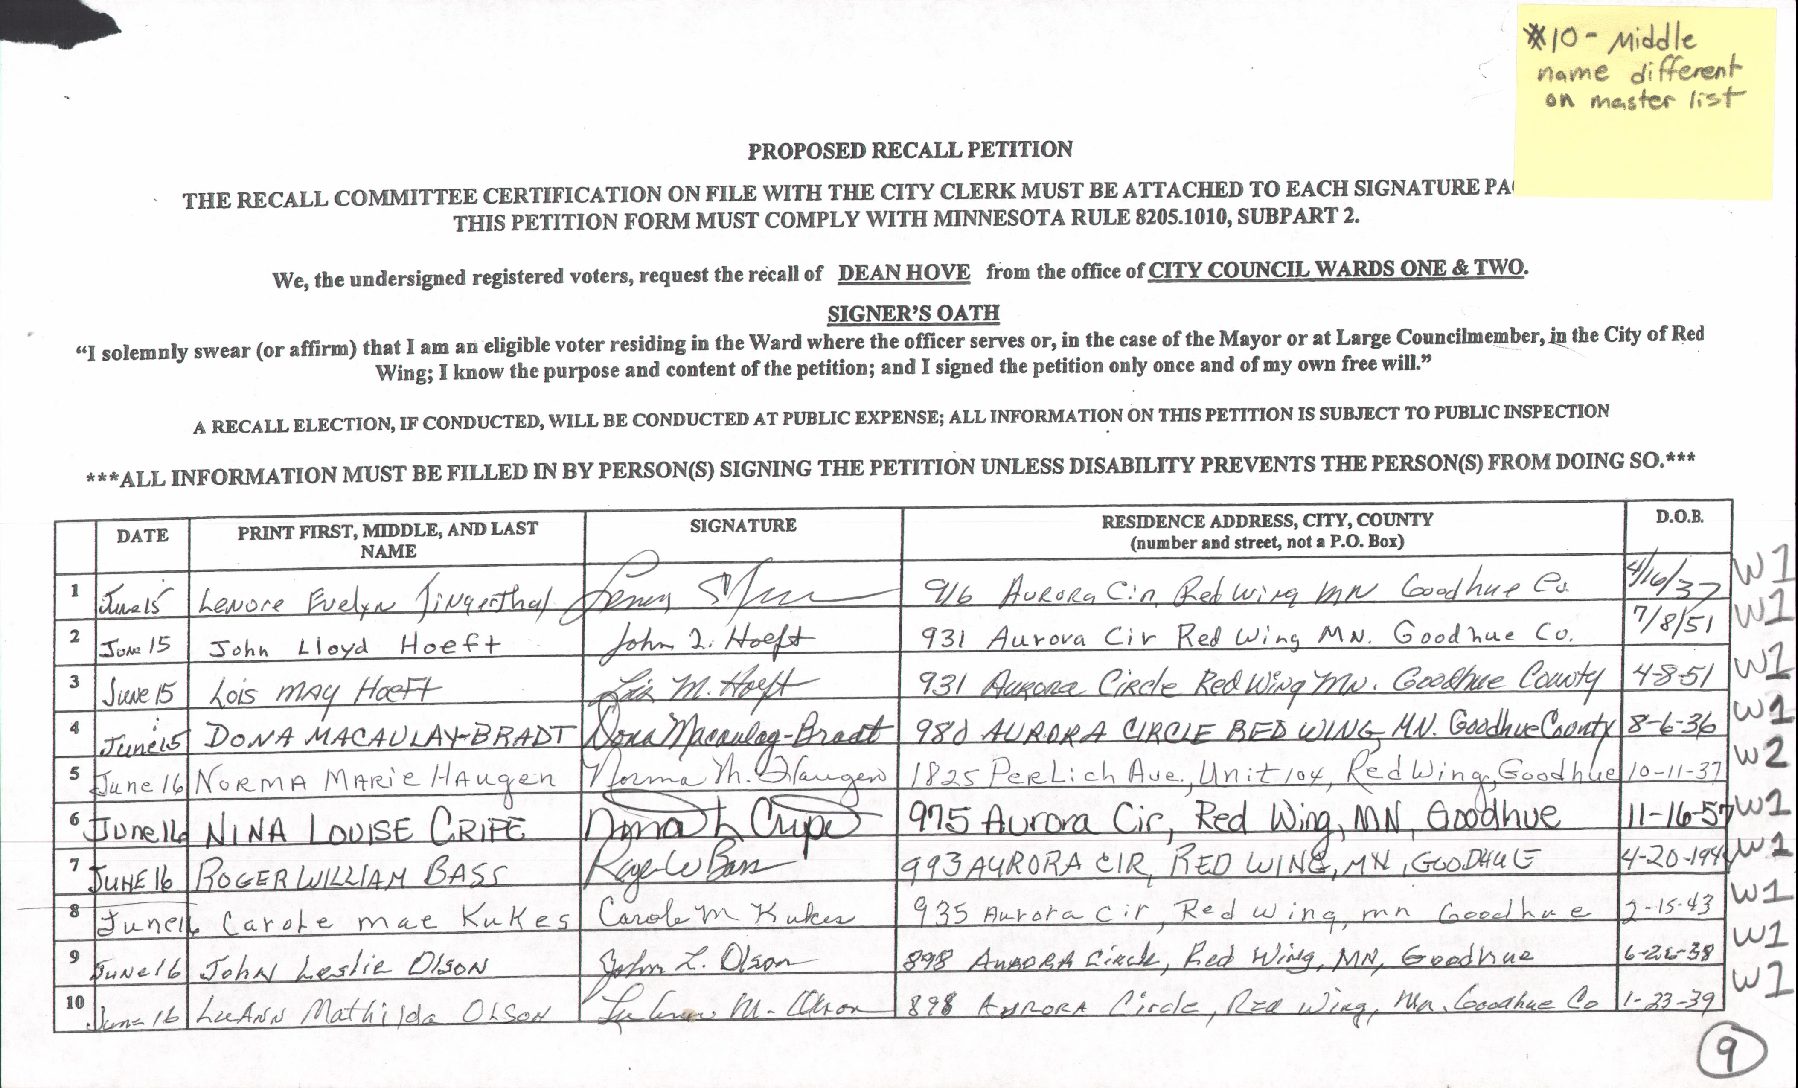 *10 - Middle
name different
on master list
PROPOSED RECALL PETITION
THE RECALL COMMITTEE CERTIFICATION ON FILE WITH THE CITY CLERK MUST BE ATTACHED TO EACH SIGNATURE PA
THIS PETITION FORM MUST COMPLY WITH MINNESOTA RULE 8205.1010, SUBPART 2.
We, the undersigned registered voters, request the recall of DEAN HOVE from the office of CITY COUNCIL WARDS ONE & TWO.
SIGNER'S OATH
“I solemnly swear (or affirm) that I am an eligible voter residing in the Ward where the officer serves or, in the case of the Mayor or at Large Councilmember, in the City of Red
Wing; I know the purpose and content of the petition; and I signed the petition only once and of my own free will.”
A RECALL ELECTION, IF CONDUCTED, WILL BE CONDUCTED AT PUBLIC EXPENSE; ALL INFORMATION ON THIS PETITION IS SUBJECT TO PUBLIC INSPECTION
***ALL INFORMATION MUST BE FILLED IN BY PERSON(S) SIGNING THE PETITION UNLESS DISABILITY PREVENTS THE PERSON(S) FROM DOING SO.***
DATE PRINT FIRST, MIDDLE, AND LAST SIGNATURE RESIDENCE ADDRESS, CITY, COUNTY D.O.B.
NAME (number and street, not a P.O. Box)
1 June 15 Lenore Evelyn Tingerthal 916 Aurora Cir. Red Wing MN Goodhue Co. 4/16/37 W1
2 June 15 John Lloyd Hoeft John L. Hoeft 931 Aurora Cir Red Wing MN. Goodhue Co. 7/8/51 W1
3 June 15 Lois May Hoeft Lois M. Hoeft 931 Aurora Circle Red Wing MN. Goodhue County 4-8-51 W1
4 June 15 DONA MACAULAY-BRADT Dona Macaulay-Bradt 980 AURORA CIRCLE RED WING, MN. Goodhue County 8-6-36 W1
5 June 16 NORMA MARIE HAUGEN Norma M. Haugen 1825 PerLich Ave., Unit 104, Red Wing, Goodhue 10-11-37 W2
6 June 16 NINA LOUISE CRIPE Nina L Cripe 975 Aurora Cir, Red Wing, MN, Goodhue 11-16-57 W1
7 JUNE 16 ROGER WILLIAM BASS Roger W Bass 993 AURORA CIR, RED WING, MN, GOODHUE 4-20-194 W1
8 June 16 Carole mae Kukes Carole M Kukes 935 Aurora cir, Red wing, mn Goodhue 2-15-43 W1
9 June 16 John Leslie Olson John L. Olson 898 Aurora Circle, Red Wing, MN, Goodhue 6-26-38 W1
10 June 16 LuAnn Mathilda Olson LuAnn M. Olson 898 Aurora Circle, Red Wing, Mn. Goodhue Co 1-23-39 W1
9